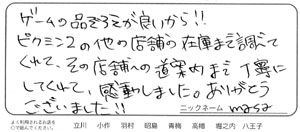 ゲームの品ぞろえが良いから!!
ピクミン2の他の店舗の在庫まで調べて
くれて、その店舗への道案内まで丁寧に
してくれて、感動しました。ありがとう
ございました!!
ニックネーム masa
よく利用されるお店を
○で囲んでください。
立川 小作 羽村 昭島 青梅 高幡 堀之内 八王子